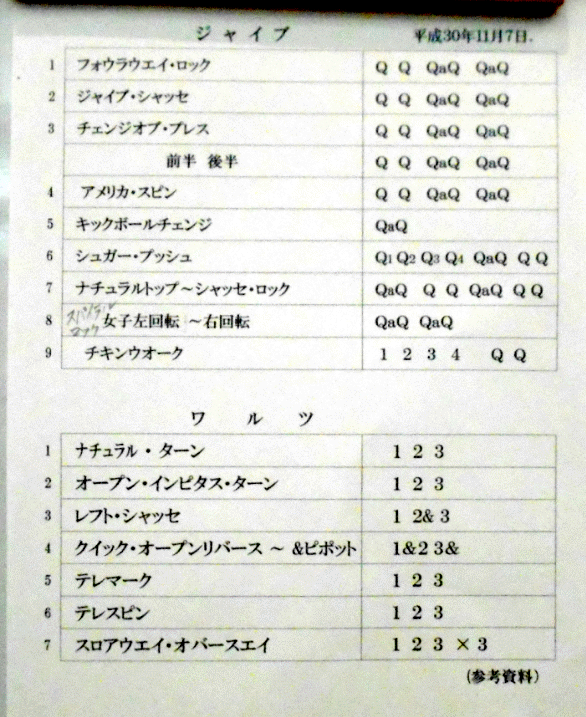 ジャイブ 平成30年11月7日.
1 フォウラウエイ・ロック Q Q QaQ QaQ
2 ジャイブ・シャッセ Q Q QaQ QaQ
3 チェンジオブ・プレス Q Q QaQ QaQ
前半 後半 Q Q QaQ QaQ
4 アメリカ・スピン Q Q QaQ QaQ
5 キックボールチェンジ QaQ
6 シュガー・プッシュ Q1 Q2 Q3 Q4 QaQ Q Q
7 ナチュラルトップ～シャッセ・ロック QaQ Q Q QaQ Q Q
スパイラル
ロック
8 女子左回転 ～右回転 QaQ QaQ
9 チキンウオーク 1 2 3 4 Q Q
ワルツ
1 ナチュラル・ターン 1 2 3
2 オープン・インピタス・ターン 1 2 3
3 レフト・シャッセ 1 2& 3
4 クイック・オープンリバース ～ &ピボット 1&2 3&
5 テレマーク 1 2 3
6 テレスピン 1 2 3
7 スロアウエイ・オバースエイ 1 2 3 × 3
(参考資料)